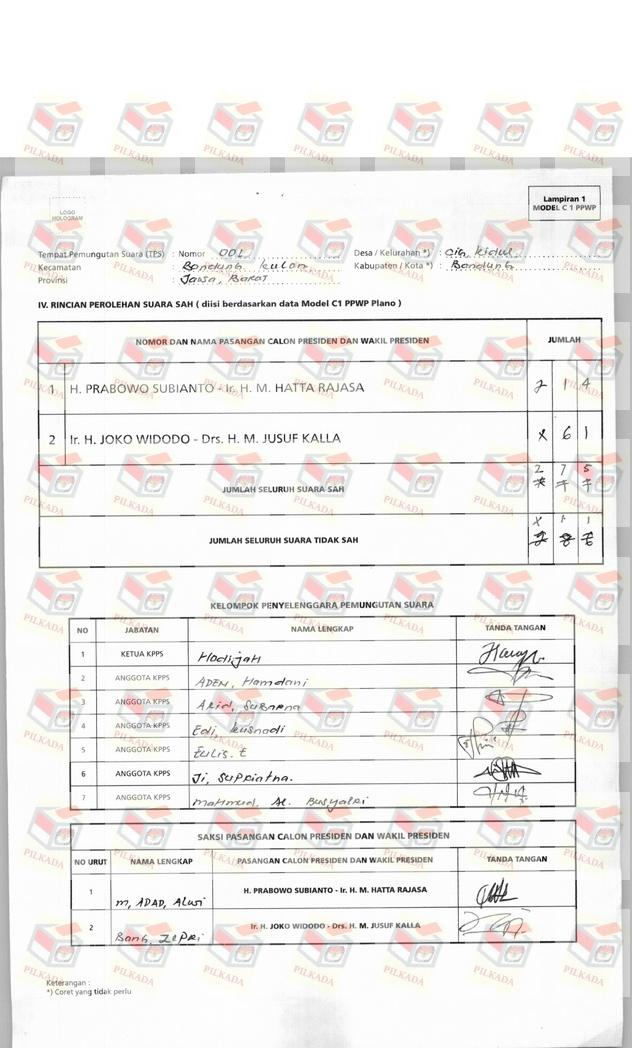 LOGO HOLOGRAM
Lampiran 1
MODEL C 1 PPWP
Tempat Pemungutan Suara (TPS) : Nomor 001 Desa / Kelurahan *) : Cig. Kidul
Kecamatan : Bandung Kulon Kabupaten / Kota *) : Bandung
Provinsi : Jawa, Barat
IV. RINCIAN PEROLEHAN SUARA SAH ( diisi berdasarkan data Model C1 PPWP Plano )
NOMOR DAN NAMA PASANGAN CALON PRESIDEN DAN WAKIL PRESIDEN JUMLAH
1 H. PRABOWO SUBIANTO - Ir. H. M. HATTA RAJASA 2 1 4
2 Ir. H. JOKO WIDODO - Drs. H. M. JUSUF KALLA X 6 1
JUMLAH SELURUH SUARA SAH 2 7 5
JUMLAH SELURUH SUARA TIDAK SAH X 1 1
KELOMPOK PENYELENGGARA PEMUNGUTAN SUARA
NO JABATAN NAMA LENGKAP TANDA TANGAN
1 KETUA KPPS Hodijah
2 ANGGOTA KPPS ADEN, Hamdani
3 ANGGOTA KPPS
4 ANGGOTA KPPS Edi, Kusnadi
5 ANGGOTA KPPS Eulis. E
6 ANGGOTA KPPS Ji, Supriatna.
7 ANGGOTA KPPS Mahmud, Al.
SAKSI PASANGAN CALON PRESIDEN DAN WAKIL PRESIDEN
NO URUT NAMA LENGKAP PASANGAN CALON PRESIDEN DAN WAKIL PRESIDEN TANDA TANGAN
1 M, ADAD, Alwi H. PRABOWO SUBIANTO - Ir. H. M. HATTA RAJASA
2 Bang, Zepri Ir. H. JOKO WIDODO - Drs. H. M. JUSUF KALLA
Keterangan :
*) Coret yang tidak perlu
PILKADA